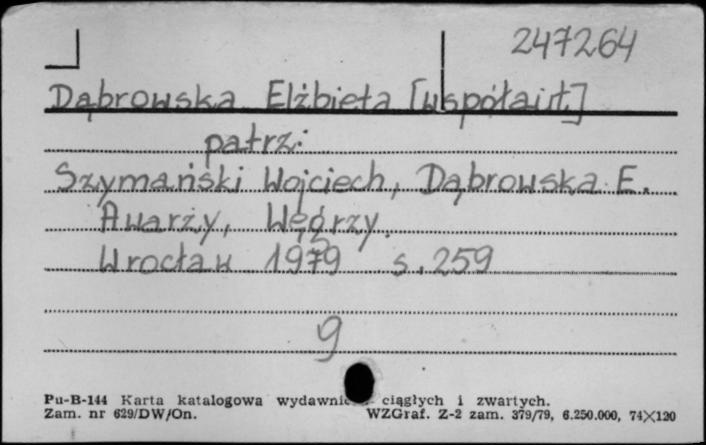 247264
Dąbrowska Elżbieta [współaut.]
patrz:
Szymański Wojciech, Dąbrowska E.
Awarzy, Węgrzy.
Wrocław 1979 s. 259
9
Pu-B-144 Karta katalogowa ciągłych i zwartych.
Zam. nr 629/DW/On. WZGraf. Z-2 zam. 379/79, 6.250.000, 74×120